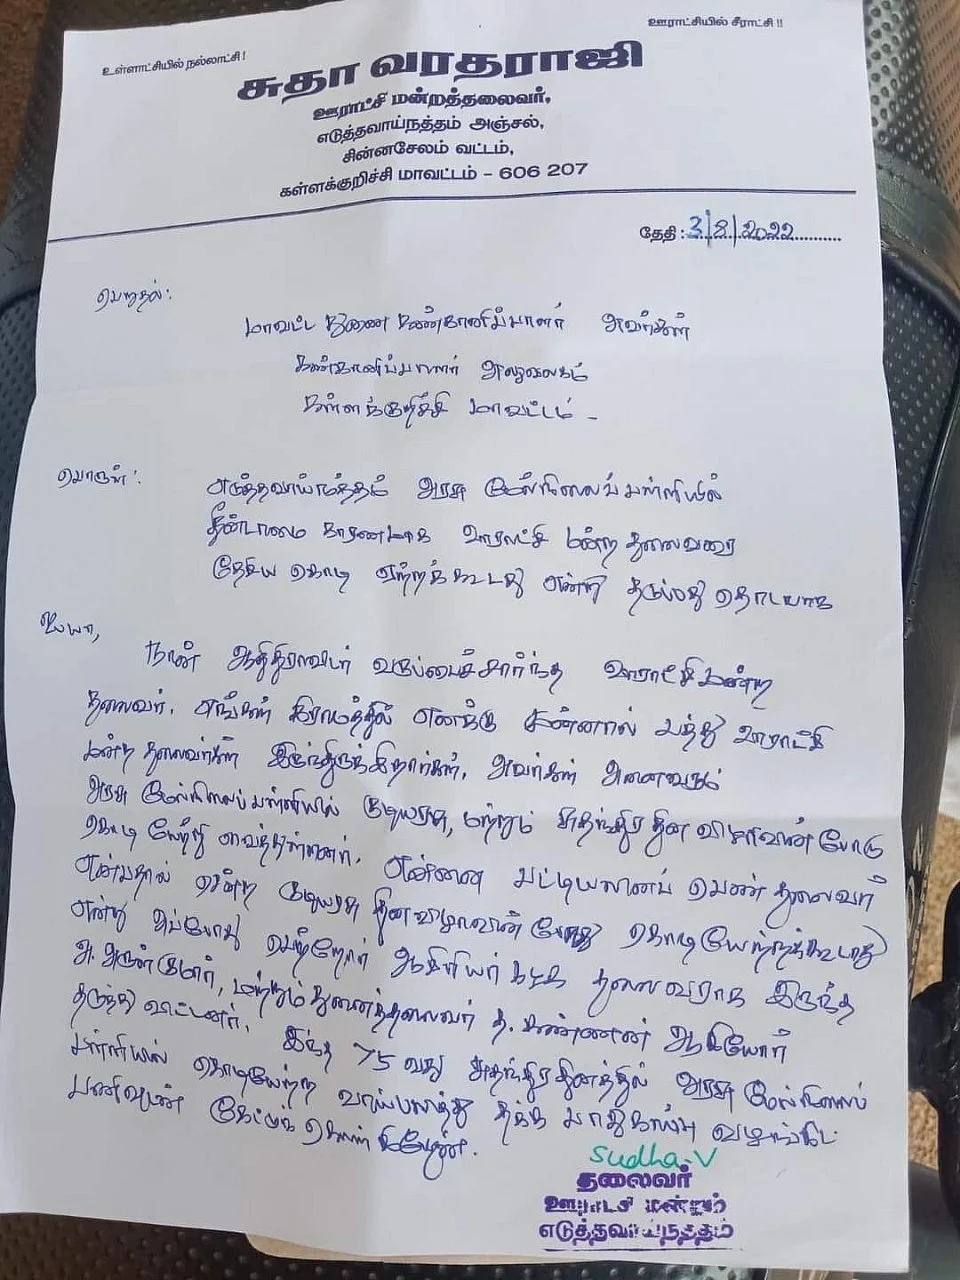 உள்ளாட்சியில் நல்லாட்சி !
ஊராட்சியில் சீராட்சி !!
சுதா வரதராஜி
ஊராட்சி மன்றத்தலைவர்,
எடுத்தவாய்நத்தம் அஞ்சல்,
சின்னசேலம் வட்டம்,
கள்ளக்குறிச்சி மாவட்டம் - 606 207
தேதி : 3/8/2022
பெறுதல்:
மாவட்ட துணை கண்காணிப்பாளர் அவர்கள்
கண்காணிப்பாளர் அலுவலகம்
கள்ளக்குறிச்சி மாவட்டம் -
பொருள்:
எடுத்தவாய்நத்தம் அரசு மேல்நிலைப்பள்ளியில்
தீண்டாமை காரணமாக ஊராட்சி மன்ற தலைவரை
தேசிய கொடி ஏற்றக்கூடாது என்று தடுப்பது தொடர்பாக
ஐயா,
நான் ஆதிதிராவிடர் வகுப்பைச்சார்ந்த ஊராட்சிமன்ற
தலைவர். எங்கள் கிராமத்தில் எனக்கு முன்னால் பத்து ஊராட்சி
மன்ற தலைவர்கள் இருந்திருக்கிறார்கள். அவர்கள் அனைவரும்
அரசு மேல்நிலைப்பள்ளியில் குடியரசு, மற்றும் சுதந்திர தின விழாவின் போது
கொடி யேற்றி வைத்துள்ளனர். என்னை பட்டியலினப் பெண் தலைவர்
என்பதால் சென்ற குடியரசு தின விழாவின் போது கொடியேற்றக்கூடாது
என்று அப்போது பெற்றோர் ஆசிரியர் கழக தலைவராக இருந்த
அ. அருள்குமார், மற்றும் துணைத்தலைவர் த. கண்ணன் ஆகியோர்
தடுத்து விட்டனர். இந்த 75 வது சுதந்திர தினத்தில் அரசு மேல்நிலைப்
பள்ளியில் கொடியேற்ற வாய்பளித்து தக்க பாதுகாப்பு வழங்கிட
பணிவுடன் கேட்டுக் கொள்கிறேன்.
Sudha.V
தலைவர்
ஊராட்சி மன்றம்
எடுத்தவாய்நத்தம்